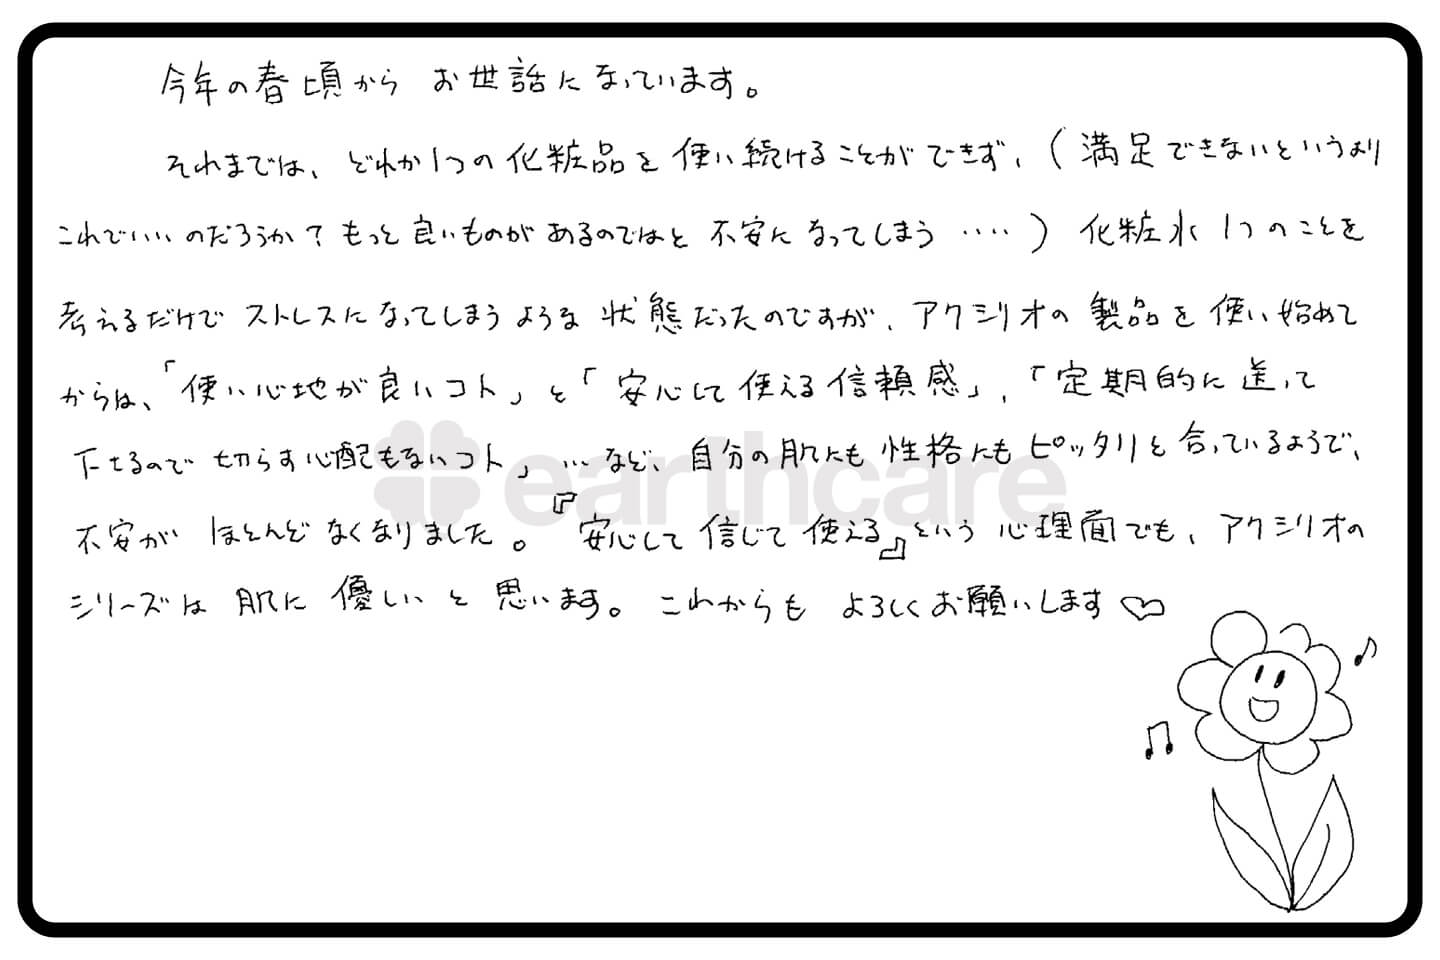 今年の春頃から お世話になっています。
それまでは、どれか1つの化粧品を使い続けることができず、(満足できないというより
これでいいのだろうか？もっと良いものがあるのではと不安になってしまう‥‥)化粧水1つのことを
考えるだけでストレスになってしまうような状態だったのですが、アクシリオの製品を使い始めて
からは、「使い心地が良いコト」と「安心して使える信頼感」、「定期的に送って
下さるので切らす心配もないコト」…など、自分の肌にも性格にもピッタリと合っているようで、
earthcare
不安がほとんどなくなりました。『安心して信じて使える』という心理面でも、アクシリオの
シリーズは肌に優しいと思います。これからもよろしくお願いします♡